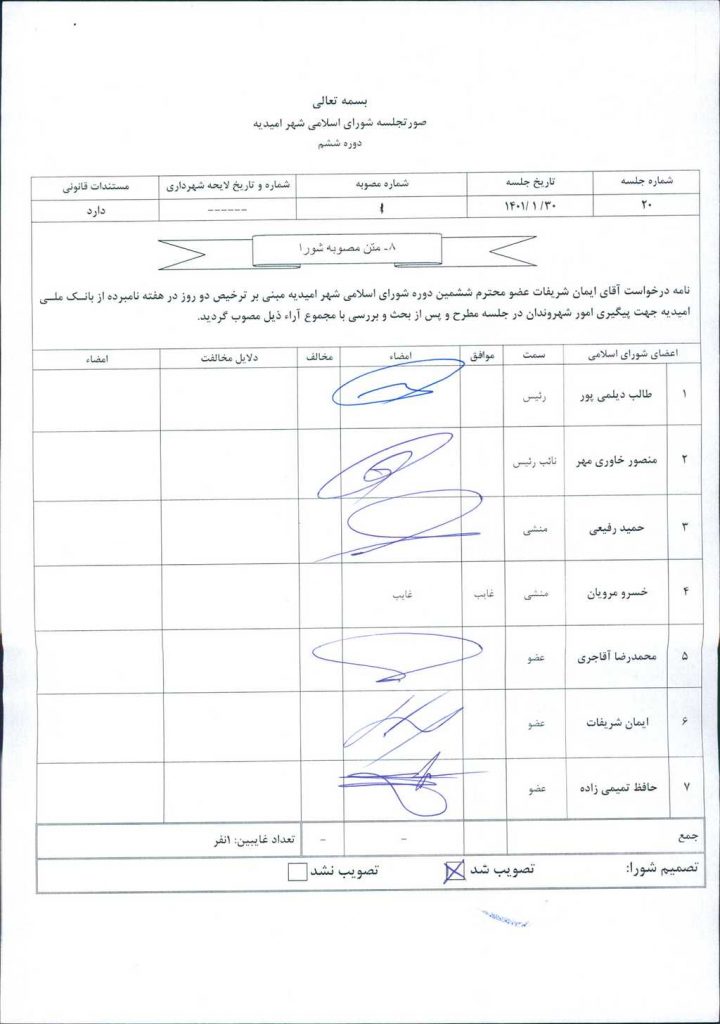 بسمه تعالی
صورتجلسه شورای اسلامی شهر امیدیه
دوره ششم
شماره جلسه تاریخ جلسه شماره مصوبه شماره و تاریخ لایحه شهرداری مستندات قانونی
۲۰ ۱۴۰۱/۱/۳۰ ------ دارد
۸- متن مصوبه شورا
نامه درخواست آقای ایمان شریفات عضو محترم ششمین دوره شورای اسلامی شهر امیدیه مبنی بر ترخیص دو روز در هفته نامبرده از بانک ملی
امیدیه جهت پیگیری امور شهروندان در جلسه مطرح و پس از بحث و بررسی با مجموع آراء ذیل مصوب گردید.
اعضای شورای اسلامی سمت موافق امضاء مخالف دلایل مخالفت امضاء
۱ طالب دیلمی پور رئیس
۲ منصور خاوری مهر نائب رئیس
۳ حمید رفیعی منشی
۴ خسرو مرویان منشی غایب غایب
۵ محمدرضا آقاجری عضو
۶ ایمان شریفات عضو
۷ حافظ تمیمی زاده عضو
جمع - - تعداد غایبین: ۱نفر
تصمیم شورا: تصویب شد تصویب نشد